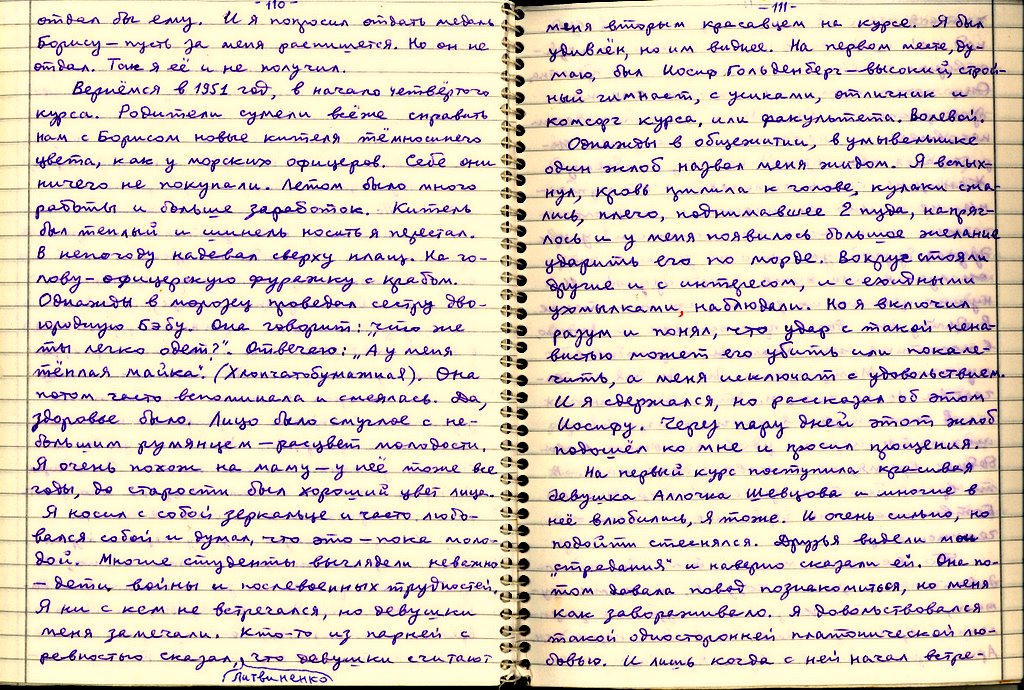 - 110 -
отдал бы ему. И я попросил отдать медаль
Борису — пусть за меня распишется. Но он не
отдал. Так я её и не получил.
Вернёмся в 1951 год, в начало четвёртого
курса. Родители сумели всёже справить
нам с Борисом новые кителя тёмносинего
цвета, как у морских офицеров. Себе они
ничего не покупали. Летом было много
работы и больше заработок. Китель
был теплый и шинель носить я перестал.
В непогоду надевал сверху плащ. На го-
лову - офицерскую фуражку с крабом.
Однажды в морозец проведал сестру дво-
юродную Бэбу. Она говорит: „что же
ты легко одет?". Отвечаю: „А у меня
тёплая майка". (Хлопчатобумажная). Она
потом часто вспоминала и смеялась. Да,
здоровье было. Лицо было смуглое с не-
большим румянцем — расцвет молодости.
Я очень похож на маму — у неё тоже все
годы, до старости был хороший цвет лица.
Я носил с собой зеркальце и часто любо-
вался собой и думал, что это - пока моло-
дой. Многие студенты выглядели неважно
— дети войны и послевоенных трудностей.
Я ни с кем не встречался, но девушки
меня замечали. Кто-то из парней с
ревностью сказал, что девушки считают
Литвиненко
- 111 -
меня вторым красавцем на курсе. Я был
удивлён, но им виднее. На первом месте, ду-
маю, был Иосиф Гольденберг — высокий, строй-
ный гимнаст, с усиками, отличник и
комсорг курса, или факультета. Волевой.
Однажды в общежитии, в умывальнике
один жлоб назвал меня жидом. Я вспых-
нул, кровь прилила к голове, кулаки сжа-
лись, плечо, поднимавшее 2 пуда, напряг-
лось и у меня появилось большое желание
ударить его по морде. Вокруг стояли
другие и с интересом, и с ехидными
ухмылками, наблюдали. Но я включил
разум и понял, что удар с такой нена-
вистью может его убить или покале-
чить, а меня исключат с удовольствием.
И я сдержался, но рассказал об этом
Иосифу. Через пару дней этот жлоб
подошёл ко мне и просил прощения.
На первый курс поступила красивая
девушка Аллочка Шевцова и многие в
неё влюбились, я тоже. И очень сильно, но
подойти стеснялся. Друзья видели мои
„страдания" и наверно сказали ей. Она по-
том давала повод познакомиться, но меня
как завораживало. Я довольствовался
такой односторонней платонической лю-
бовью. И лишь когда с ней начал встре-